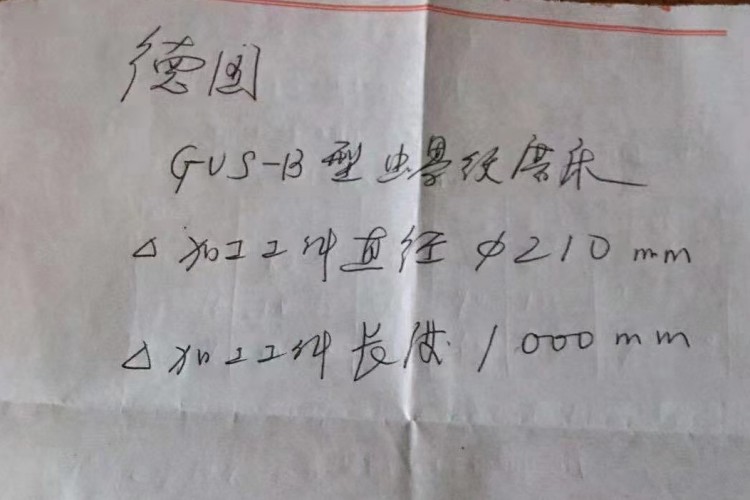 德国
GUS-B型螺纹磨床
△加工工件直径φ210mm
△加工工件长度1000mm